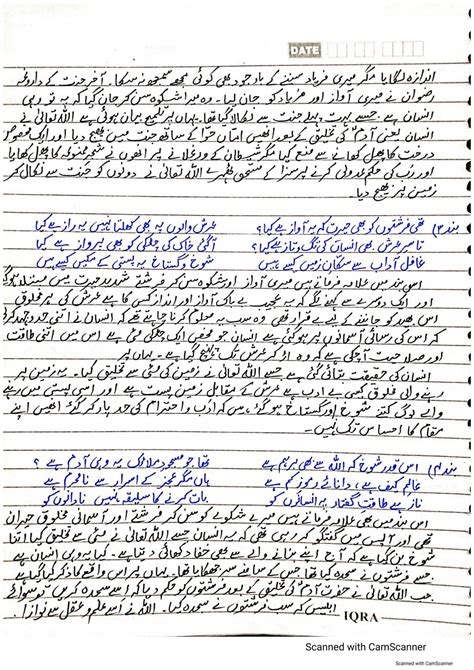 DATE
اندازہ لگایا مگر میری فریاد سننے کے باوجود بھی کوئی مجھے سمجھ نہ سکا۔ آخر جنت کے داروغہ
رضوان نے میری آواز اور فریاد کو جان لیا۔ وہ میرا شکوہ سن کر جان گیا کہ یہ تو وہی
انسان ہے۔ جسے بہت پہلے جنت سے نکالا گیا تھا۔ یہاں پر تلمیح بیان ہوئی ہے اللہ تعالیٰ نے
انسان یعنی آدمؑ کی تخلیق کے بعد انھیں اماں حوا کے ساتھ جنت میں بھیج دیا۔ اور ایک مخصوص
درخت کا پھل کھانے سے منع کیا مگر شیطان کے ورغلانے پر انھوں نے شجر ممنوعہ کا پھل کھایا
اور رب کی حکم عدولی کرنے پر سزا کے مستحق ٹھہرے اللہ تعالیٰ نے دونوں کو جنت سے نکال کر
زمین پر بھیج دیا۔
بند ۳) تھی فرشتوں کو بھی حیرت کہ یہ آواز ہے کیا؟ عرش والوں پہ بھی کھلتا نہیں یہ راز ہے کیا
تا سرِ عرش بھی انساں کی تگ و تاز ہے کیا؟ آگئی خاک کی چٹکی کو بھی پرواز ہے کیا
غافل آداب سے سکانِ زمیں کیسے ہیں شوخ و گستاخ یہ پستی کے مکیں کیسے ہیں
اس بند میں علامہ فرماتے ہیں میری آواز اور شکوہ سن کر فرشتے شدید حیرت میں مبتلا ہوگئے
اور ایک دوسرے سے کہنے لگے کہ یہ عجیب بے باک آواز اور انداز کس کا ہے عرش کی ہر مخلوق
اس بھید کو جاننے کے لیے بے قرار تھی وہ سب یہ معلوم کرنا چاہتے تھے کہ انسان نے اتنی جدوجہد کرلی
کہ اس کی رسائی آسمانوں پر ہوگئی ہے انسان جو محض ایک چٹکی مٹی ہے اس میں اتنی طاقت
اور صلاحیت آچکی ہے کہ وہ اڑ کر عرش تک پہنچ گیا ہے۔ یہاں پر
انسان کی حقیقت بتائی گئی ہے جسے اللہ تعالیٰ نے زمین کی مٹی سے تخلیق کیا۔ یہ زمین پر
رہنے والی مخلوق کیسی بے ادب ہے عرش کے مقابل زمین پست ہے اور اسی پستی میں رہنے
والے لوگ کتنے شوخ اور گستاخ ہوگئے، میں کہ ادب و احترام کی حد پار کر گئے انھیں اپنے
مقام کا احساس تک نہیں۔
بند ۴) اس قدر شوخ کہ اللہ سے بھی برہم ہے تھا جو مسجودِ ملائک یہ وہی آدم ہے
عالمِ کیف ہے، دانائے رموزِ کم ہے ہاں مگر عجز کے اسرار سے نامحرم ہے
ناز ہے طاقتِ گفتار پہ انسانوں کو بات کرنے کا سلیقہ نہیں نادانوں کو
اس بند میں بھی علامہ فرماتے ہیں میرے شکوے کو سن کر فرشتے اور آسمانی مخلوق حیران
تھی اور آپس میں گفتگو کر رہی تھی کہ یہ انسان جسے اللہ تعالیٰ نے مٹی سے تخلیق کیا تھا اتنا
شوخ بن گیا ہے کہ آج اپنے بنانے والے سے بھی خفا دکھائی دیتا ہے۔ کیا یہ وہی انسان ہے
جسے فرشتوں نے سجدہ کیا تھا جس کے سامنے سر جھکایا تھا۔ یہاں پر اس واقعے کا ذکر کیا گیا ہے
جب اللہ تعالیٰ نے حضرت آدمؑ کی تخلیق کے بعد فرشتوں کو حکم دیا کہ اسے سجدہ کریں تو سوائے
ابلیس کے سب فرشتوں نے سجدہ کیا۔ اللہ نے اسے علم و عقل سے نوازا۔
IQRA
Scanned with CamScanner
Scanned with CamScanner